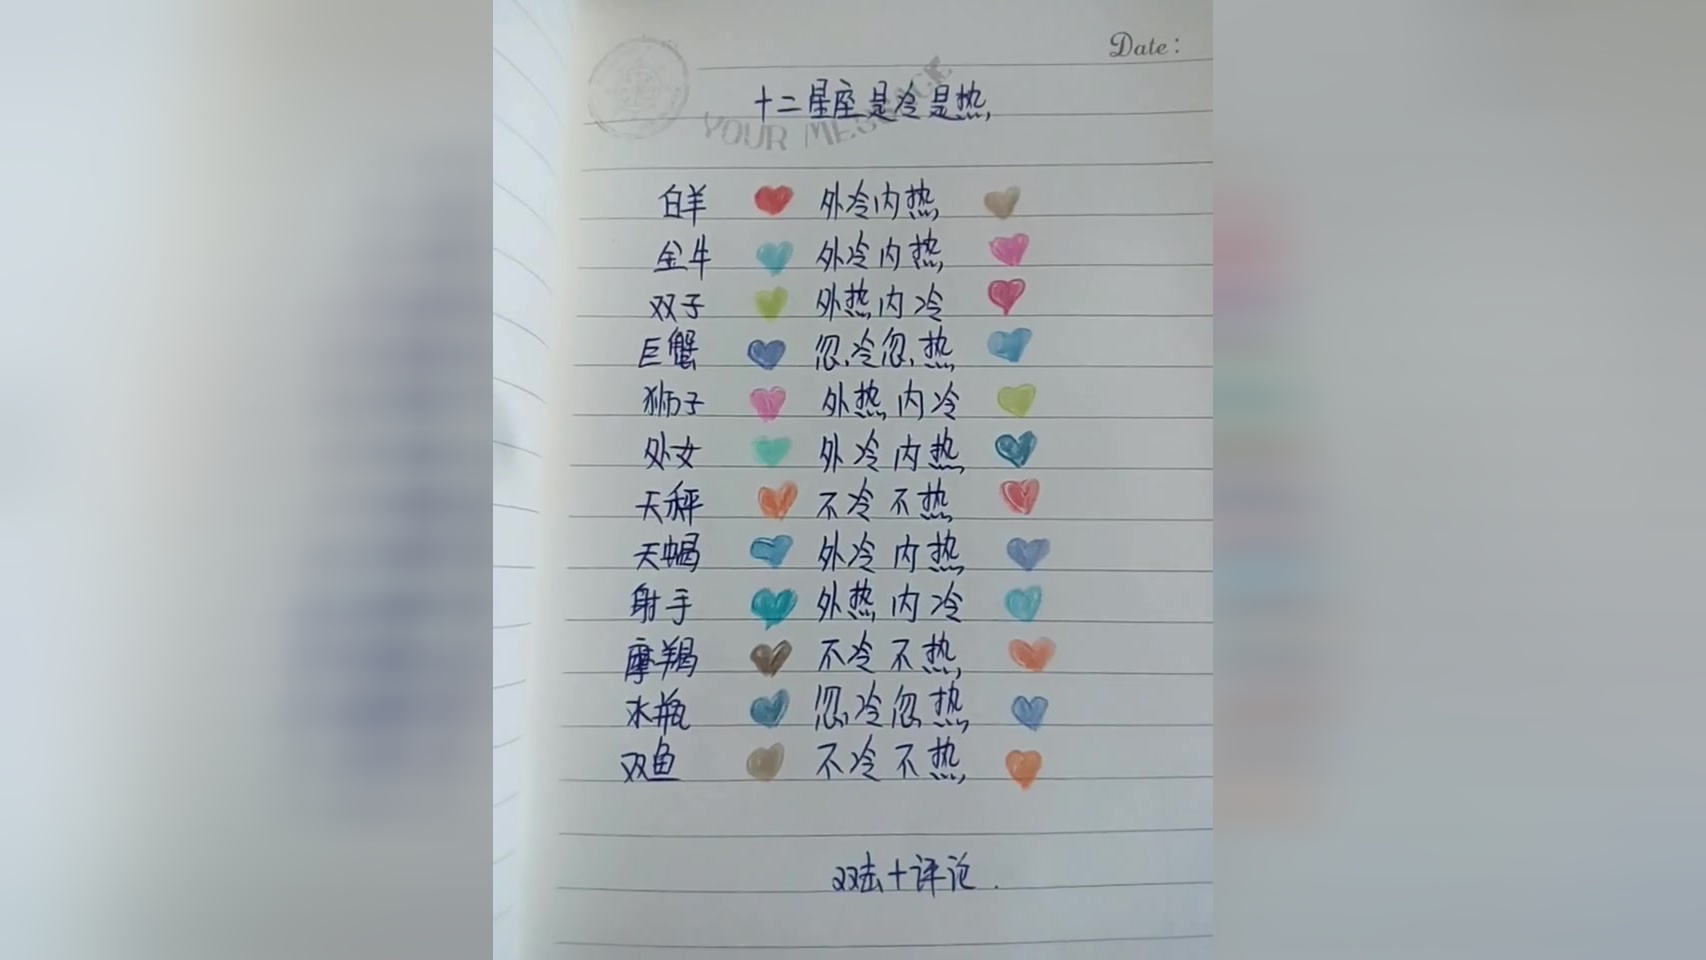 Date:
十二星座是冷是热
YOUR MESSAGE
白羊 外冷内热
金牛 外冷内热
双子 外热内冷
巨蟹 忽冷忽热
狮子 外热内冷
处女 外冷内热
天秤 不冷不热
天蝎 外冷内热
射手 外热内冷
摩羯 不冷不热
水瓶 忽冷忽热
双鱼 不冷不热
双击+评论.